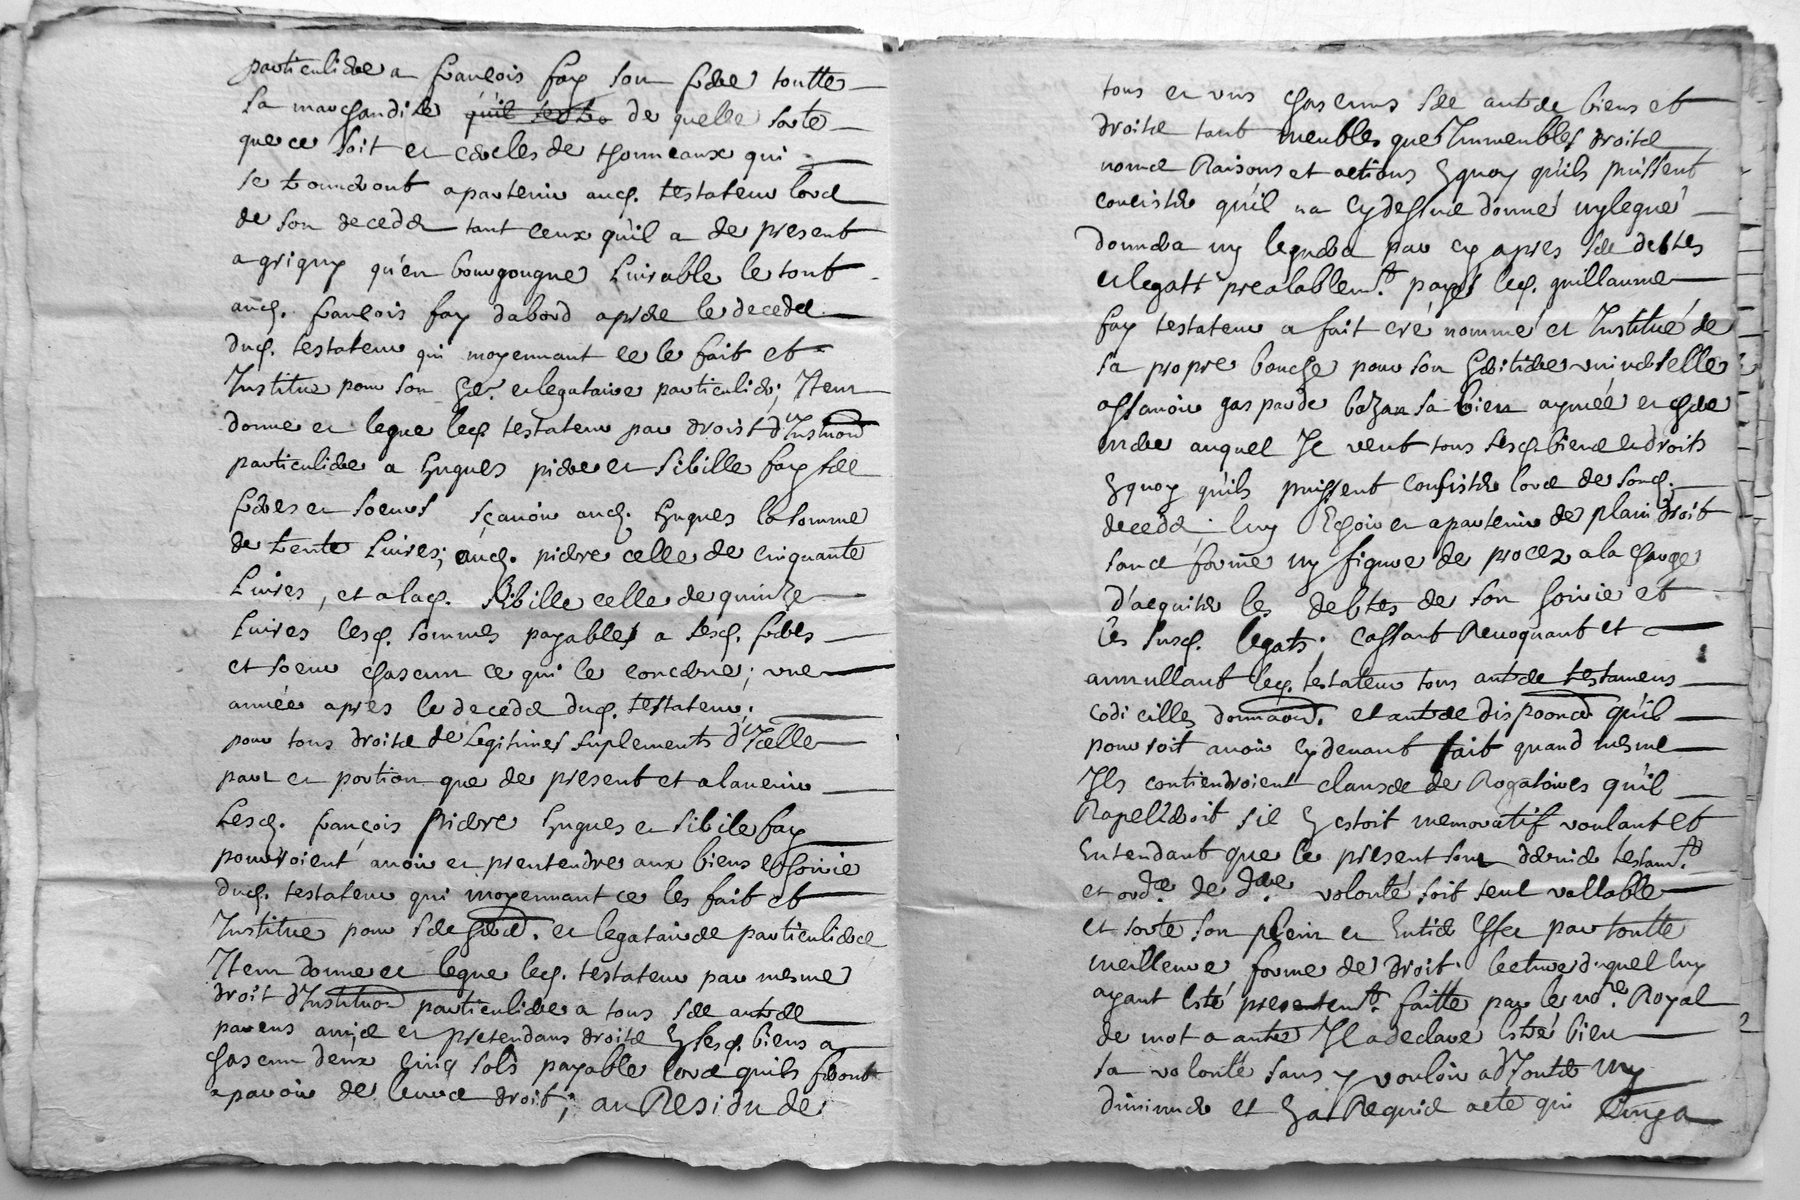 particuliere a françois fay son frere touttes
sa marchandise qu'il sera de quelle sorte
que ce soit et cercles de thonneaux qui
se trouveront apartenir aud. testateur lors
de son deceds tant ceux qu'il a de present
a grigny qu'en bourgougne livrable le tout
aud. françois fay dabord apres le deceds
dud. testateur qui moyennant ce le fait et
Institue pour son her. et legataire particulier; Item
donne et legue led. testateur par droist d'Instion
particuliere a hugues pierre et sibille fay ses
freres et soeurs sçavoir aud. hugues la somme
de trente livres; aud. pierre celle de cinquante
livres, et a lad. sibille celle de quinze
livres lesd. sommes payables a sesd. freres
et soeur chascun ce qui le concerne; une
année apres le deceds dud. testateur;
pour tous droits de legitimes suplements d'Icelle
part et portion que de present et alavenir
lesd. françois pierre hugues et sibile fay
pourroient avoir et prentendre aux biens et hoirie
dud. testateur qui moyennant ce les fait et
Institue pour ses herers. et legataires particuliers
Item donne et legue led. testateur par mesme
droit d'Institution particuliere a tous ses autres
parens amis et pretendans droits y sesd. biens a
chascun deux cinq sols payable lors quils feront
aparoir de leurs droit; au Residu de
tous et uns chascuns ses autres biens et
droits tant meubles que Immeubles droits
noms Raisons et actions y quoy qu'ils puissent
concister qu'il na cydessus donné ny legué
donnera ny leguera par cy apres ses debtes
et legats prealablemt. payés led. guillaume
fay testateur a fait cré nommé et Institué de
sa propre bouche pour son heritiere universelle
assavoir gasparde bozan sa bien aymée et chere
mere auquel Il veut tous sesd. biens et droits
y quoy qu'ils puissent consister lors de sond.
deceds; luy Echoir et apartenir de plain droit
sans forme ny figure de procez a la charge
d'acquiter les debtes de son hoirie et
les susd. legats; cassant Revoquant et
annullant led. testateur tous autres testamens
codicilles donnaons. et autres dispoons qu'il
pourroit avoir cydevant fait quand mesme
Ils contiendroient clauses de Rogatoires qu'il
Rapelleroit sil y estoit memoratif voulant et
Entendant que le present son dernier testamt.
et ordre. de dre. volonté soit seul vallable
et sorte son plein et Entier effet par toutte
meilleure forme de droit. lecture duquel luy
ayant Esté presentemt. faitte par le nore. Royal
de mot a autre Il a declaré Estre bien
sa volonté sans y vouloir adjouter ny
diminuer et y a Requis acte qui